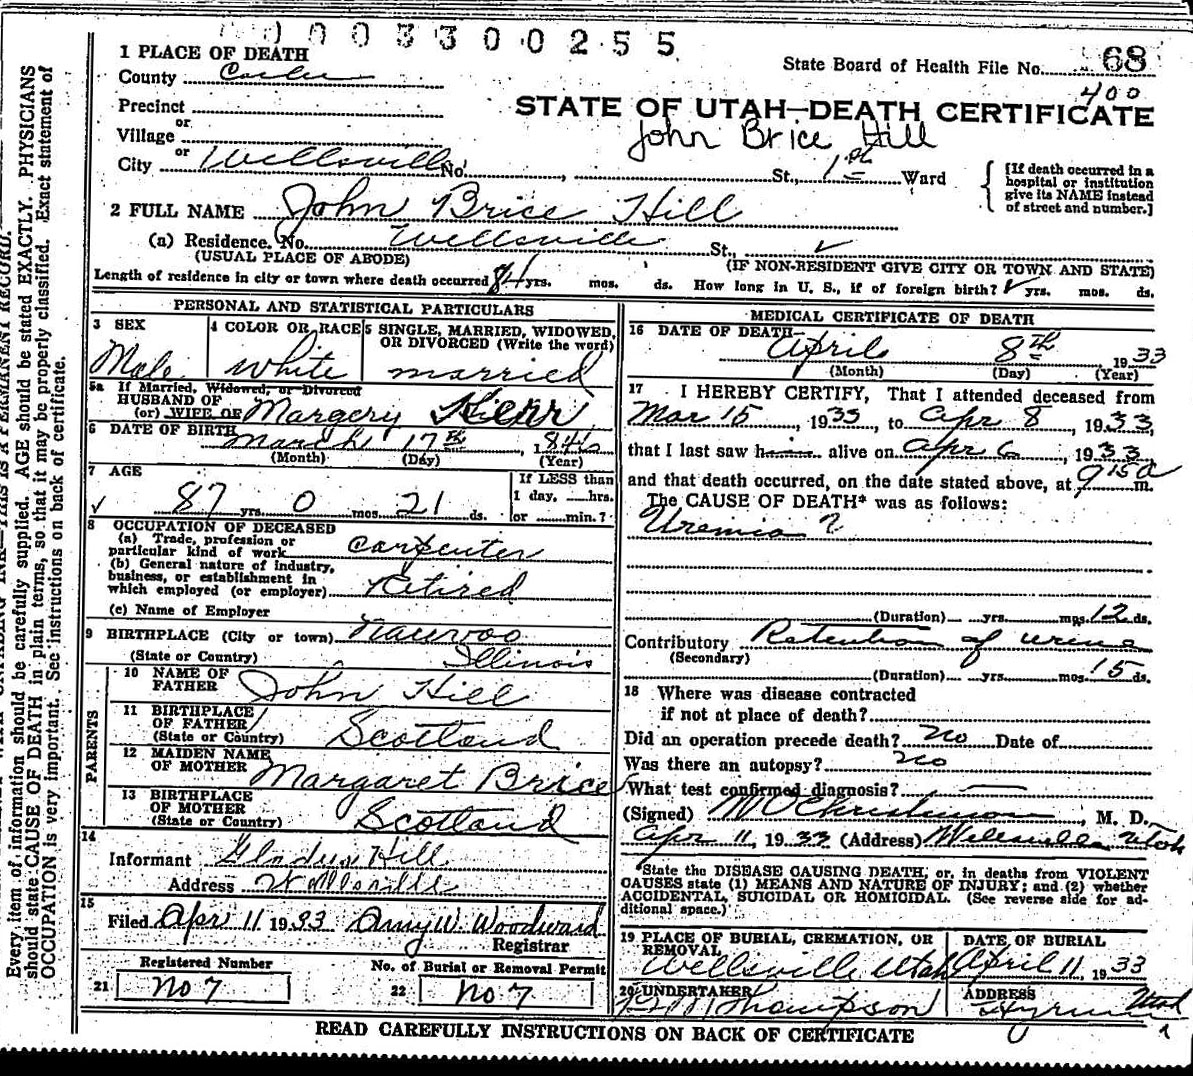 0003300255
1 PLACE OF DEATH
State Board of Health File No. 68
County
400
Precinct
STATE OF UTAH—DEATH CERTIFICATE
or
John Brice Hill
Village
or
City Wellsville No. , St., 1st Ward
[If death occurred in a hospital or institution give its NAME instead of street and number.]
2 FULL NAME John Brice Hill
(a) Residence. No. Wellsville St., ✓
(USUAL PLACE OF ABODE) (IF NON-RESIDENT GIVE CITY OR TOWN AND STATE)
Length of residence in city or town where death occurred yrs. mos. ds. How long in U. S., if of foreign birth? ✓ yrs. mos. ds.
PERSONAL AND STATISTICAL PARTICULARS
3 SEX
4 COLOR OR RACE
5 SINGLE, MARRIED, WIDOWED, OR DIVORCED (Write the word)
Male
White
married
5a If Married, Widowed, or Divorced
HUSBAND OF
(or) WIFE OF Margery Kerr
6 DATE OF BIRTH March 17th, 1846
(Month) (Day) (Year)
7 AGE
If LESS than
1 day, hrs.
✓ 87 yrs. 0 mos. 21 ds.
or min.?
8 OCCUPATION OF DECEASED
(a) Trade, profession or
particular kind of work carpenter
(b) General nature of industry,
business, or establishment in
which employed (or employer) retired
(c) Name of Employer
9 BIRTHPLACE (City or town) Nauvoo
(State or Country) Illinois
PARENTS
10 NAME OF
FATHER John Hill
11 BIRTHPLACE
OF FATHER
(State or Country) Scotland
12 MAIDEN NAME
OF MOTHER Margaret Brice
13 BIRTHPLACE
OF MOTHER
(State or Country) Scotland
14
Informant Gladys Hill
Address Wellsville
15
Filed Apr 11 1933 Amy W. Woodward
Registrar
Registered Number
No. of Burial or Removal Permit
21 No 7
22 No 7
MEDICAL CERTIFICATE OF DEATH
16 DATE OF DEATH
April 8th 1933
(Month) (Day) (Year)
17 I HEREBY CERTIFY, That I attended deceased from
Mar 15, 1933, to Apr 8, 1933,
that I last saw h alive on Apr 6, 1933
and that death occurred, on the date stated above, at 9 15 a m.
The CAUSE OF DEATH* was as follows:
Uremia ?
(Duration) yrs. mos. 12 ds.
Contributory Retention of urine
(Secondary)
(Duration) yrs. mos. 15 ds.
18 Where was disease contracted
if not at place of death?
Did an operation precede death? No Date of
Was there an autopsy? No
What test confirmed diagnosis?
(Signed) , M. D.
Apr 11, 1933 (Address) Wellsville Utah
*State the DISEASE CAUSING DEATH, or, in deaths from VIOLENT
CAUSES state (1) MEANS AND NATURE OF INJURY; and (2) whether
ACCIDENTAL, SUICIDAL OR HOMICIDAL. (See reverse side for ad-
ditional space.)
19 PLACE OF BURIAL, CREMATION, OR
REMOVAL
Wellsville Utah
DATE OF BURIAL
April 11, 1933
20 UNDERTAKER
Thompson
ADDRESS
Hyrum Utah
READ CAREFULLY INSTRUCTIONS ON BACK OF CERTIFICATE
Every item of information should be carefully supplied. AGE should be stated EXACTLY. PHYSICIANS
should state CAUSE OF DEATH in plain terms, so that it may be properly classified. Exact statement of
OCCUPATION is very important. See instructions on back of certificate.